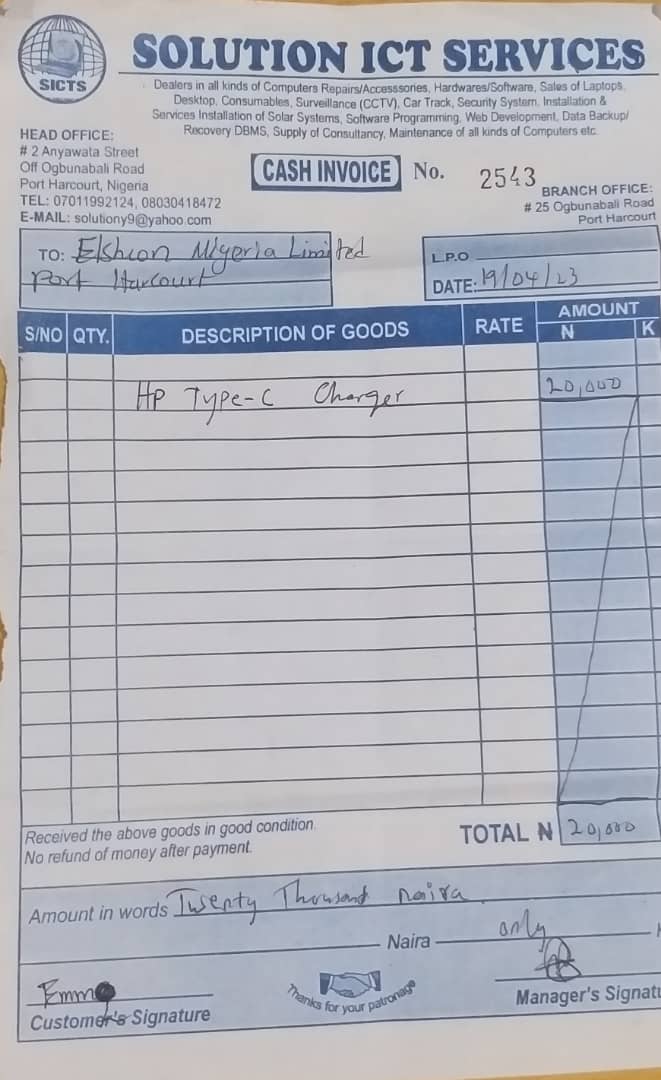 SICTS
SOLUTION ICT SERVICES
Dealers in all kinds of Computers Repairs/Accesssories, Hardwares/Software, Sales of Laptops,
Desktop, Consumables, Surveillance (CCTV), Car Track, Security System, Installation &
Services Installation of Solar Systems, Software Programming, Web Development, Data Backup/
Recovery DBMS, Supply of Consultancy, Maintenance of all kinds of Computers etc.
HEAD OFFICE:
# 2 Anyawata Street
Off Ogbunabali Road
Port Harcourt, Nigeria
TEL: 07011992124, 08030418472
E-MAIL: solutiony9@yahoo.com
CASH INVOICE No. 2543
BRANCH OFFICE:
# 25 Ogbunabali Road
Port Harcourt
TO: Elshcon Nigeria Limited
Port Harcourt
L.P.O
DATE: 19/04/23
S/NO QTY. DESCRIPTION OF GOODS RATE AMOUNT
N K
HP Type-C Charger 20,000
Received the above goods in good condition.
No refund of money after payment.
TOTAL N 20,000
Amount in words Twenty Thousand naira
Naira only
Customer's Signature
Thanks for your patronage
Manager's Signatu